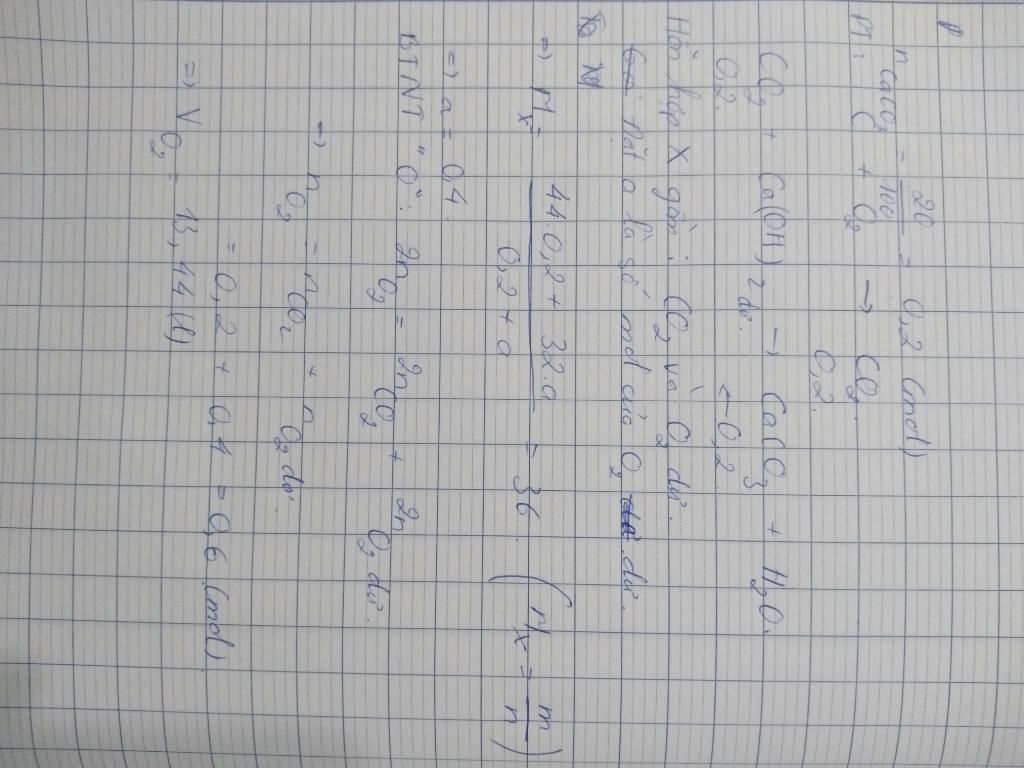 n CaCO₃ = 20/100 = 0,2 (mol)
Pt: C + O₂ → CO₂.
0,2.
CO₂ + Ca(OH)₂ dư. → CaCO₃ + H₂O.
0,2. ← 0,2.
Hỗn hợp X gồm: CO₂ và O₂ dư.
Đặt a là số mol của O₂ dư.
⇒ M_X = (44.0,2 + 32.a)/(0,2 + a) = 36. (M_X = m/n)
⇒ a = 0,4.
BTNT "O": 2n O₂ = 2n CO₂ + 2n O₂ dư.
⇒ n O₂ = n CO₂ + n O₂ dư
= 0,2 + 0,4 = 0,6 (mol)
⇒ V O₂ = 13,44 (l)